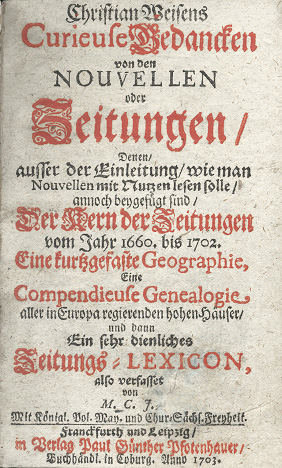 Christian Weisens
Curieuse Gedancken
von den
NOUVELLEN
oder
Zeitungen/
Denen/
ausser der Einleitung/ wie man
Nouvellen mit Nutzen lesen solle/
annoch beygefügt sind/
Der Kern der Zeitungen
vom Jahr 1660. bis 1702.
Eine kurtzgefaste Geographie,
Eine
Compendieuse Genealogie
aller in Europa regierenden hohen Häuser/
und dann
Ein sehr dienliches
Zeitungs-LEXICON,
also verfasset
von
M. C. J.
Mit Königl. Pol. May. und Chur-Sächs. Freyheit.
Franckfurth und Leipzig/
in Verlag Paul Günther Pfotenhauer/
Buchhändl. in Coburg. Anno 1703.